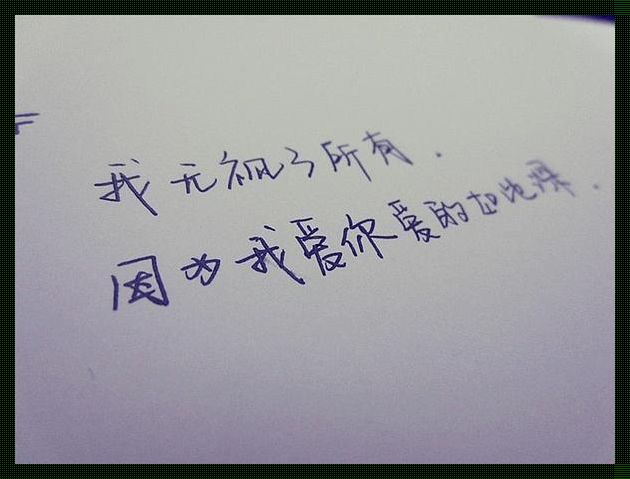 我无视了所有.
因为我爱你爱的如此深.